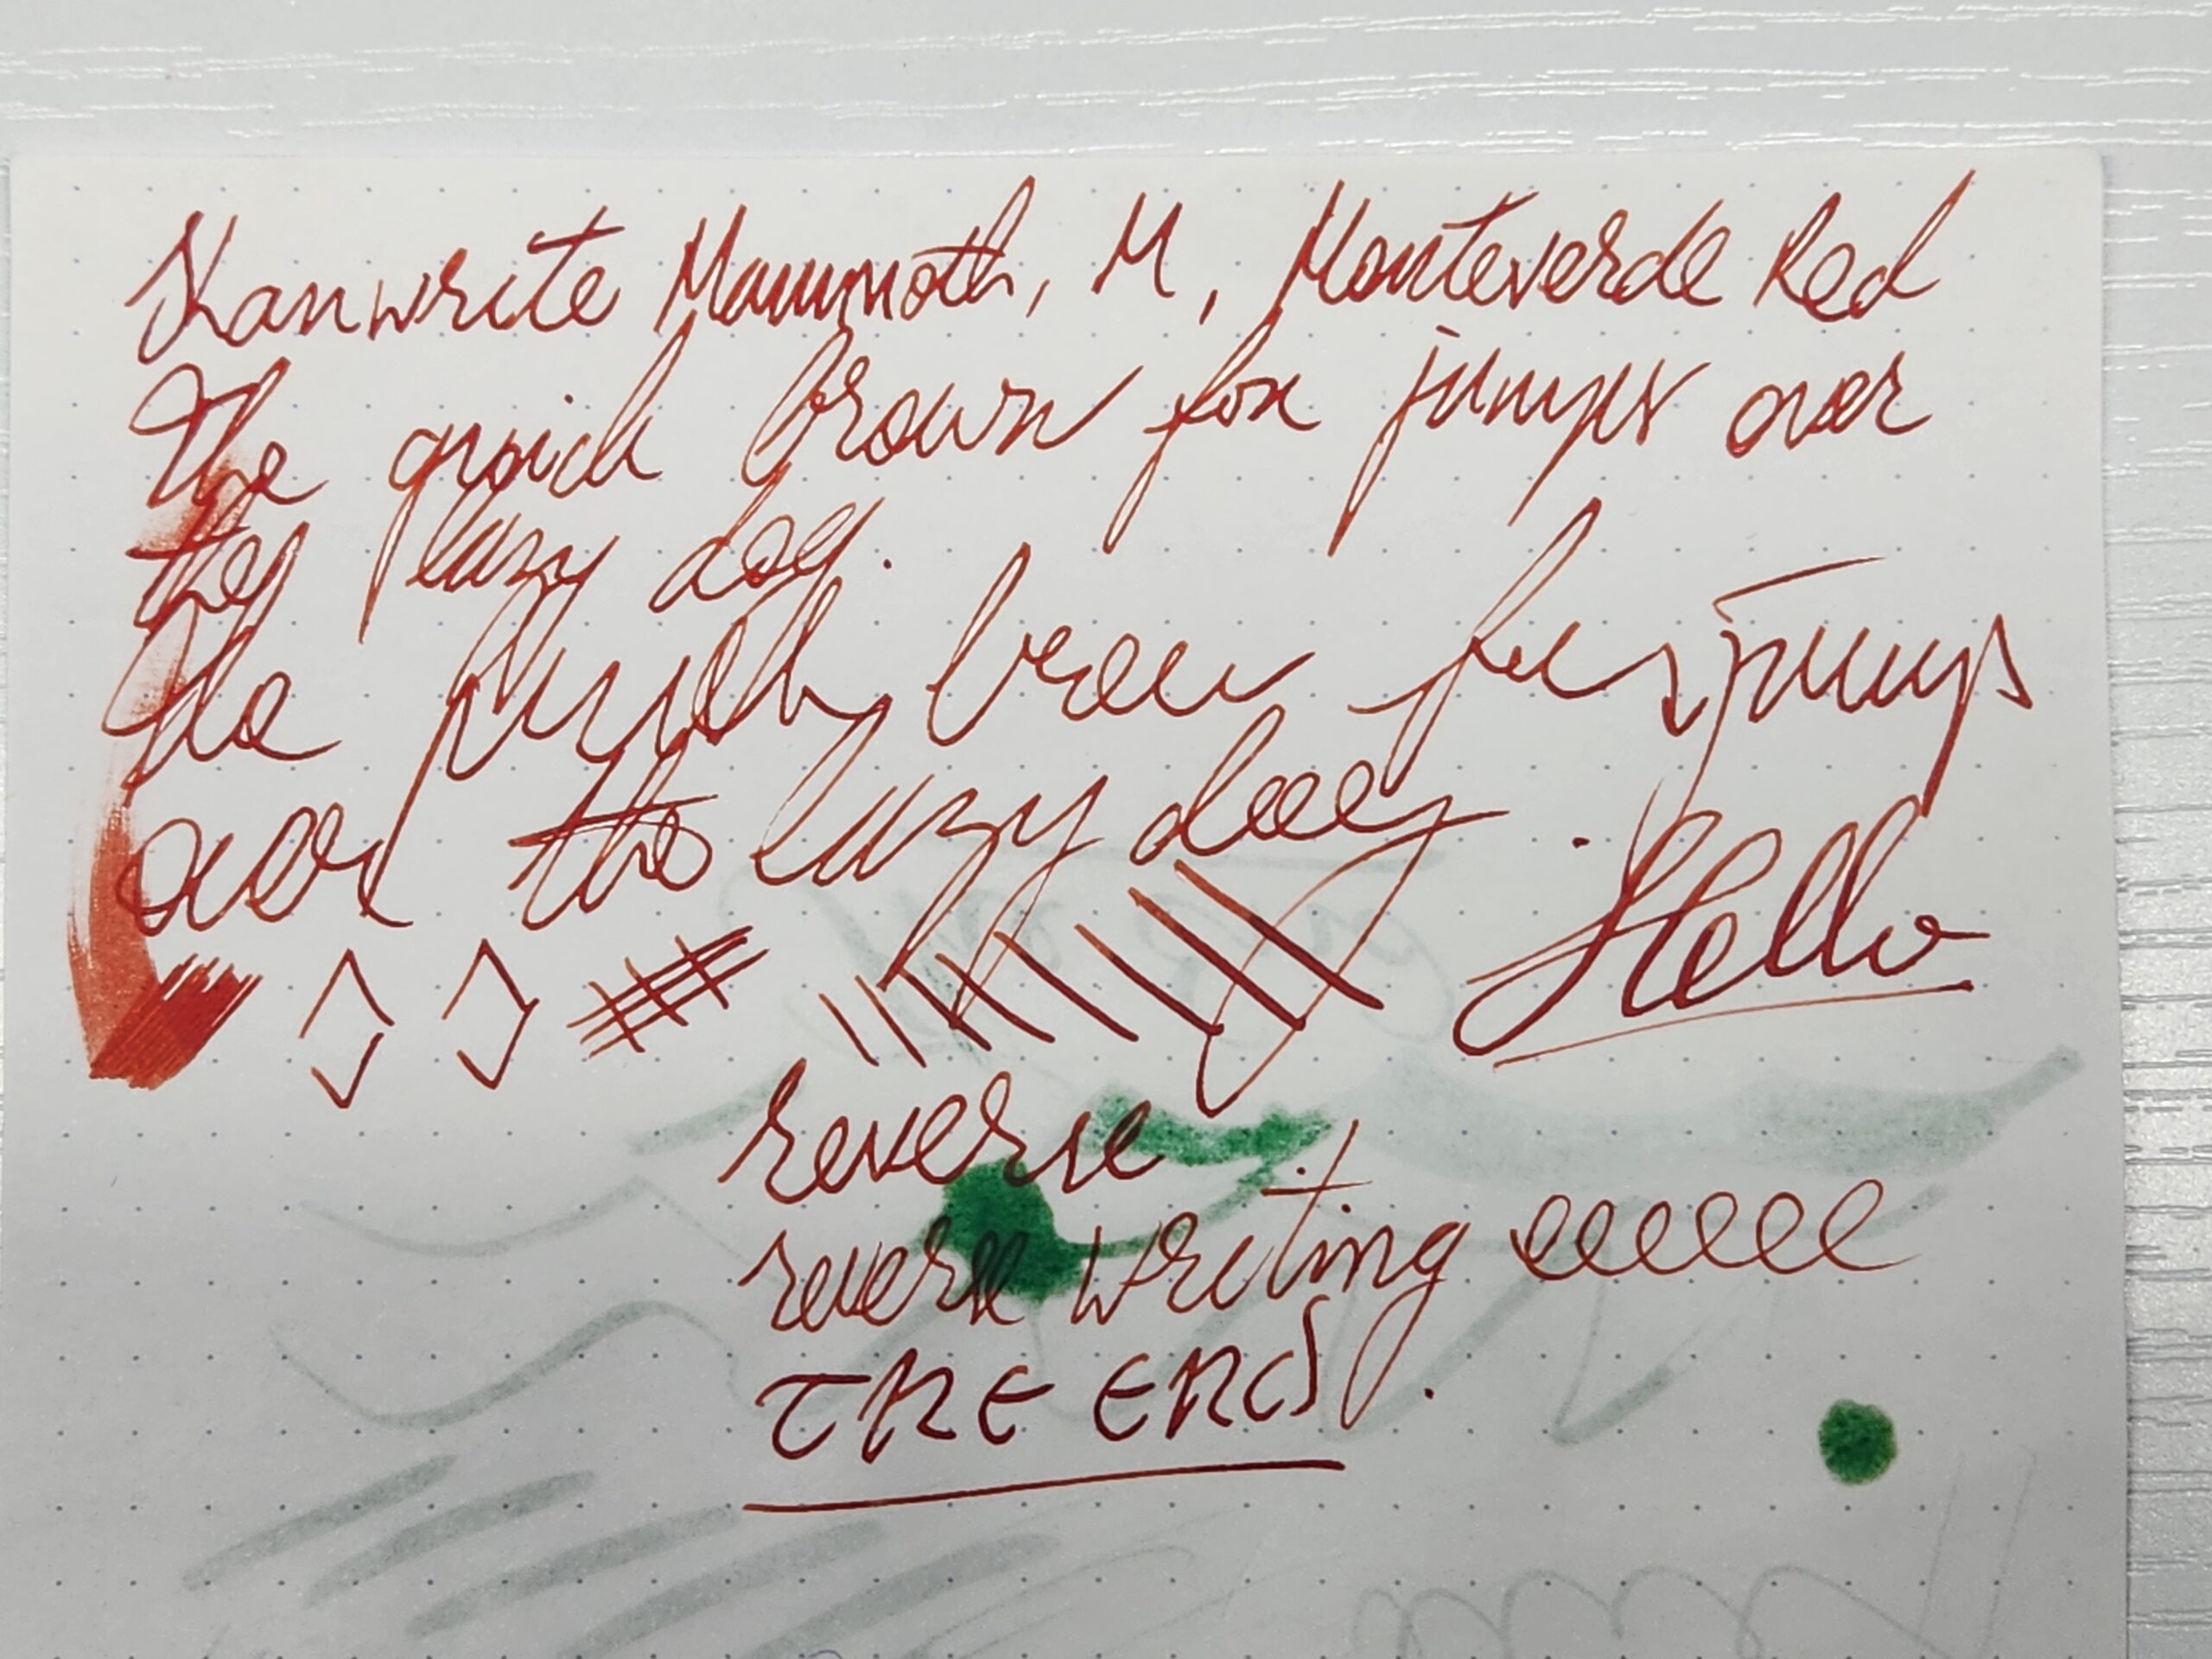 Kanwrite Mammoth, M, Monteverde Red
The quick brown fox jumps over
the lazy dog.
the quick brown fox jumps
over the lazy dog.
Hello
reverse
reverse writing eeeeee
THE END.